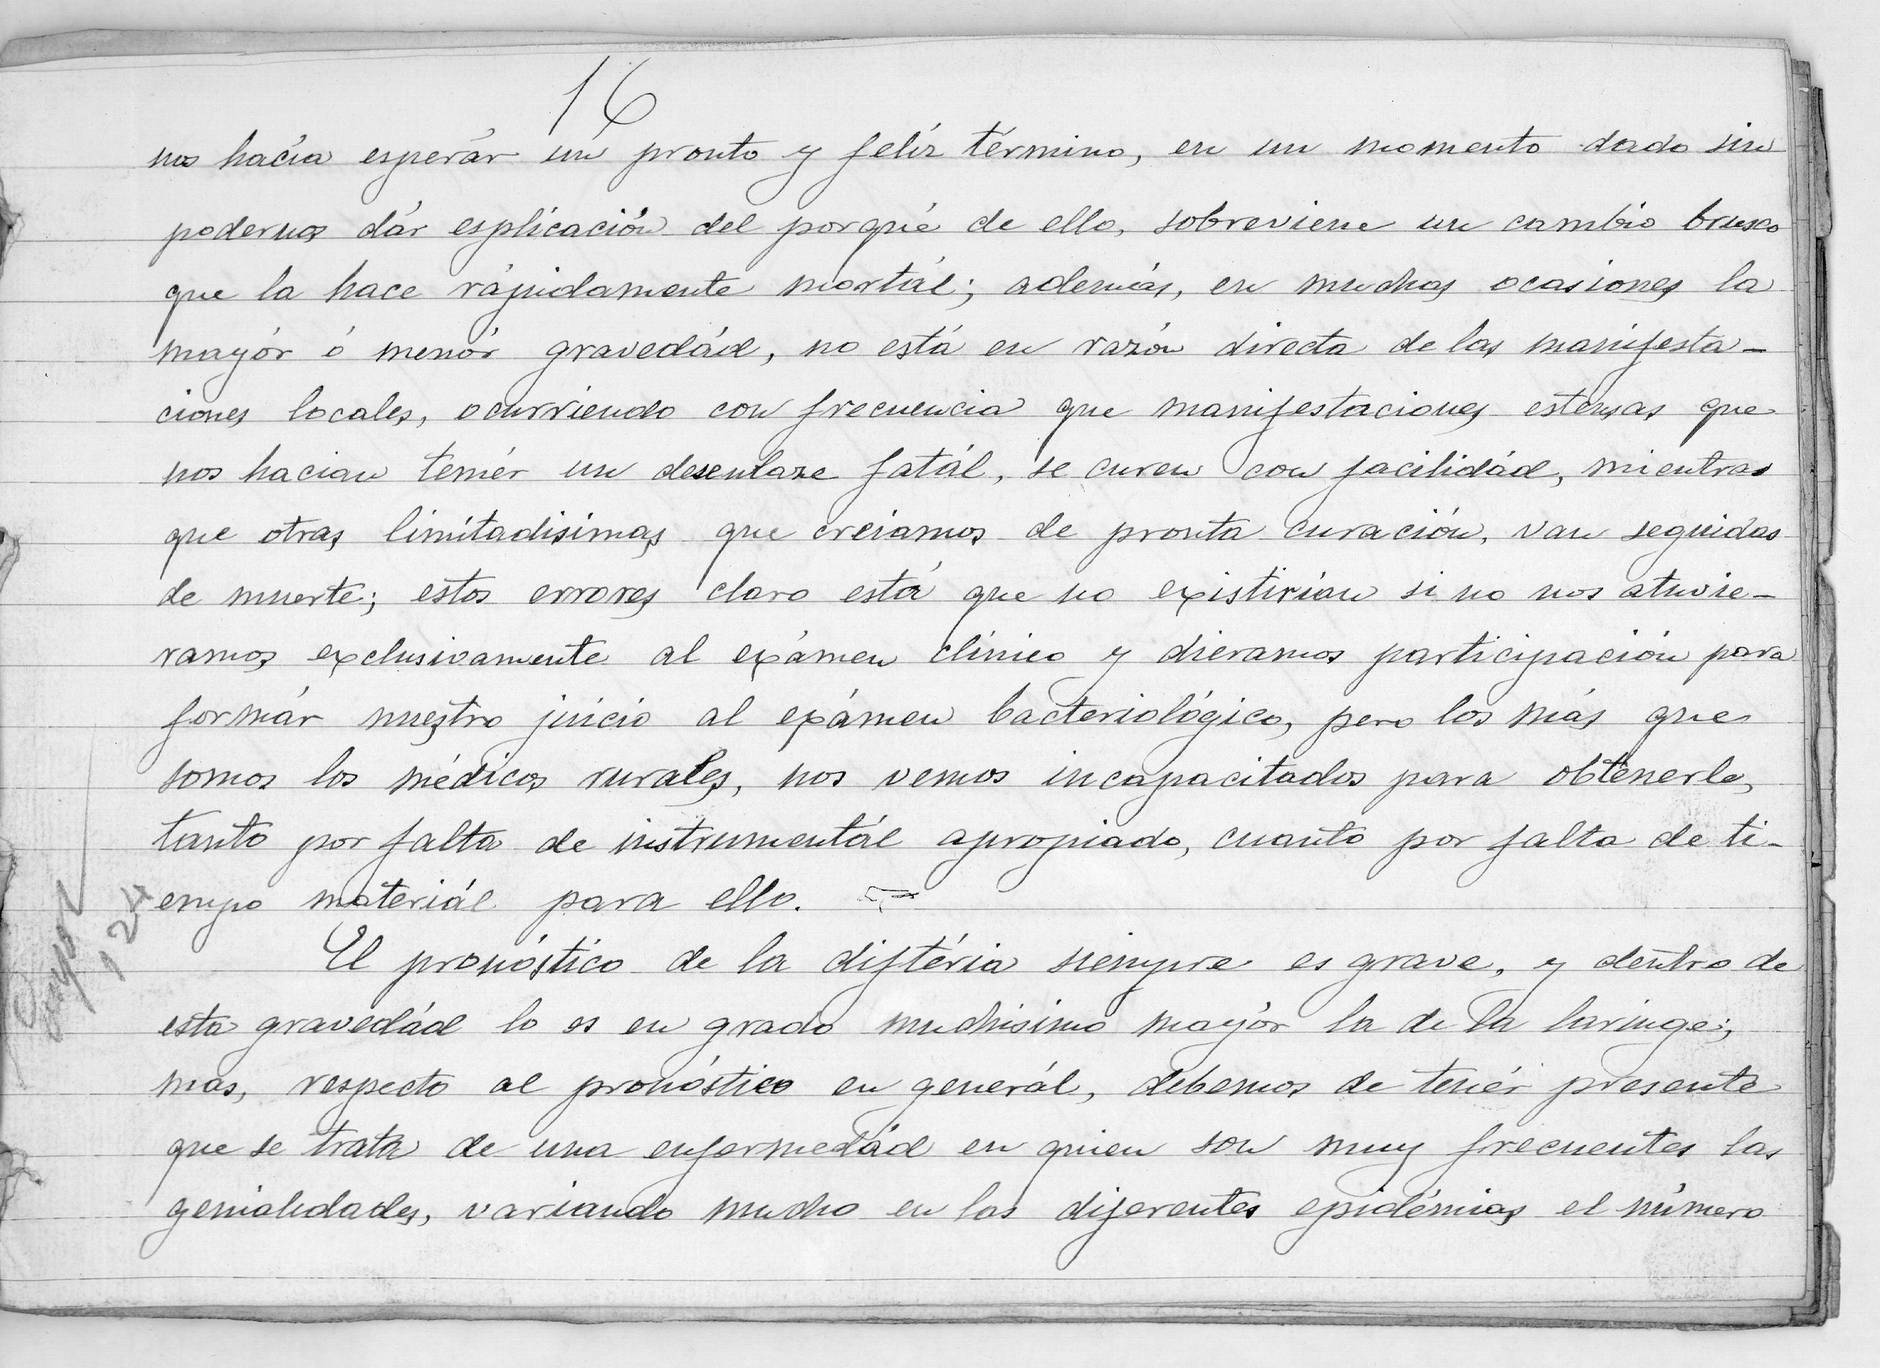 16
nos hacía esperár un pronto y felíz término, en un momento dado sin
podernos dár esplicación del porqué de ello, sobreviene un cambio brusco
que la hace rápidamente mortál; además, en muchas ocasiones la
mayór ó menór gravedád, no está en razón directa de las manifesta-
ciones locales, ocurriendo con frecuencia que manifestaciones estensas que
nos hacian temér un desenlaze fatál, se curen con facilidád, mientras
que otras limitadisimas que creiamos de pronta curación, van seguidas
de muerte; estos errores claro está que no existirían si no nos atuvie-
ramos exclusivamente al exámen clínico y dieramos participación para
formár nuestro juicio al exámen bacteriológico, pero los más que
somos los médicos rurales, nos vemos incapacitados para obtenerle,
tanto por falta de instrumentál apropiado, cuanto por falta de ti-
empo materiál para ello.
El pronóstico de la diftéria siempre es grave, y dentro de
esta gravedád lo es en grado muchisimo mayór la de la laringe;
mas, respecto al pronóstico en generál, debemos de tenér presente
que se trata de una enfermedád en quien son muy frecuentes las
genialidades, variando mucho en las diferentes epidémias el número
124